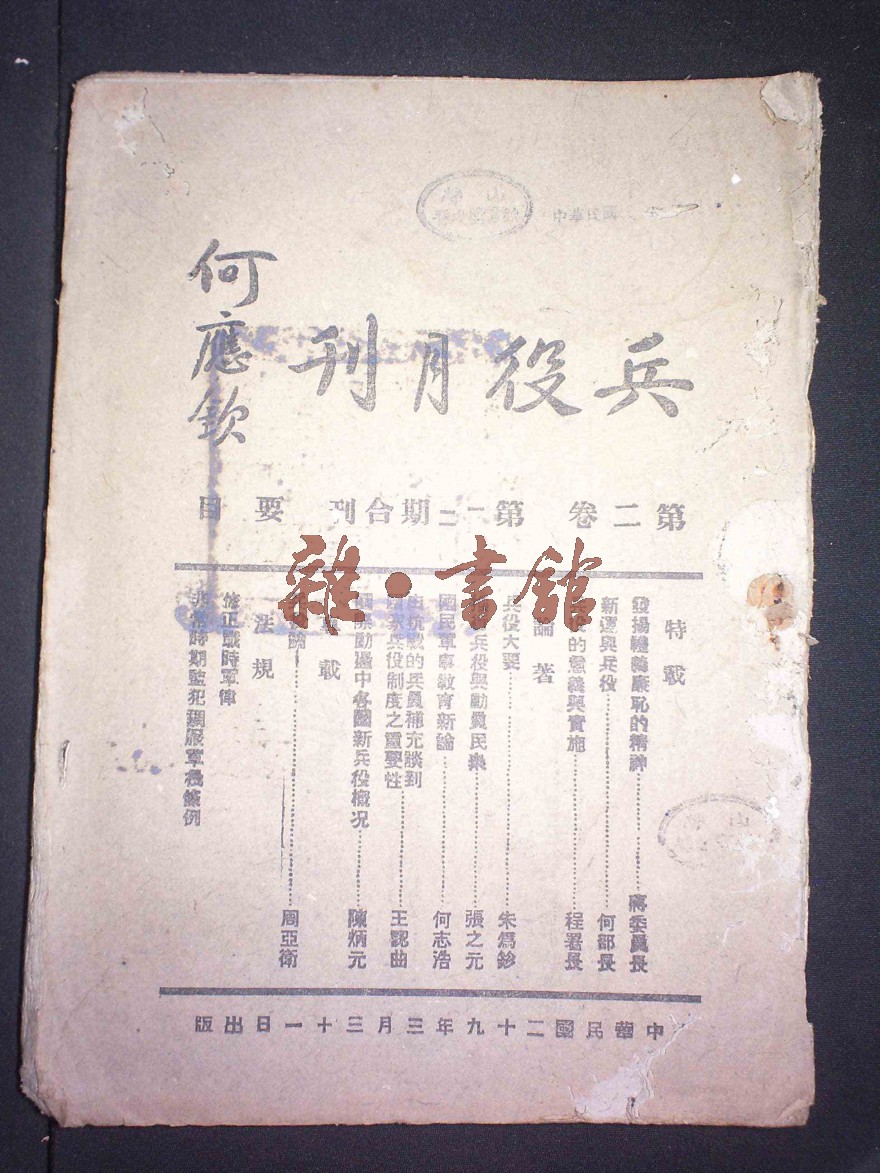 中華民國
兵役月刊
何應欽
第二卷 第一二期合刊 要目
特載
發揚禮義廉恥的精神 蔣委員長
新運與兵役 何部長
兵役的意義與實施 程署長
論著
兵役大要 朱爲鉁
兵役與動員民衆 張之元
國民軍事教育新論 何志浩
抗戰的兵員補充談到
國家兵役制度之重要性 王認曲
國際動盪中各國新兵役概況 陳炳元
載
論 周亞衛
法規
修正戰時軍律
非常時期監犯調服軍役條例
中華民國二十九年三月三十一日出版
雜·書館